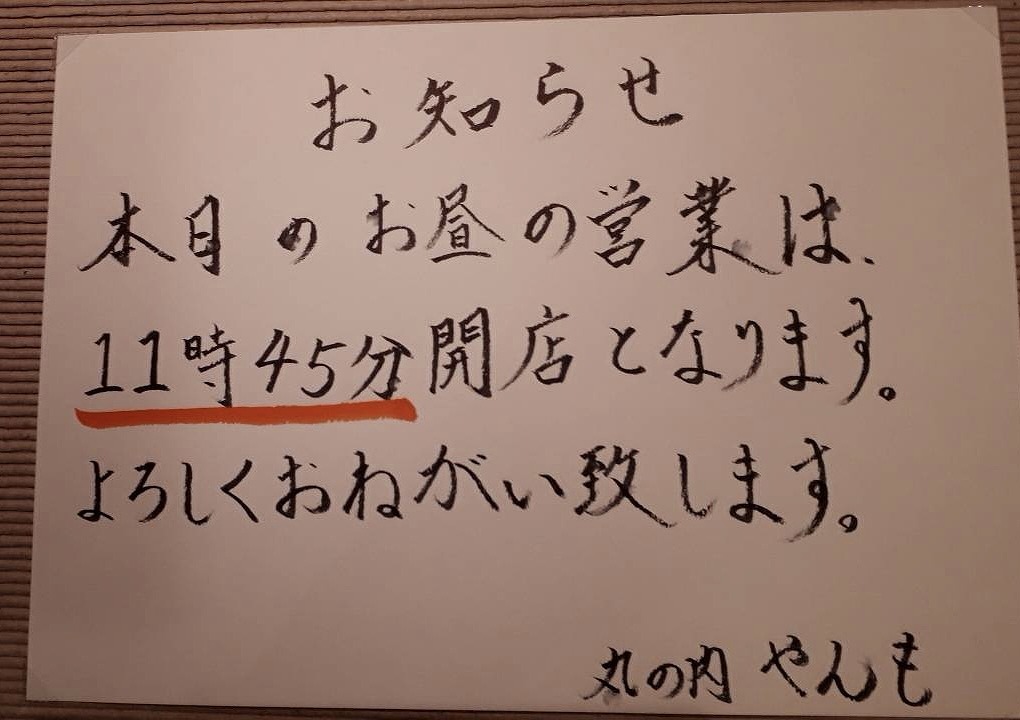 お知らせ
本日のお昼の営業は、
11時45分開店となります。
よろしくおねがい致します。
丸の内 やんも